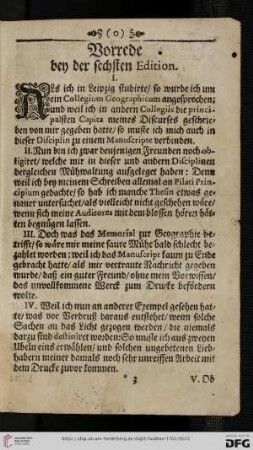 (o)
Vorrede
bey der sechsten Edition.
I.
Als ich in Leipzig studirte/ so wurde ich um
ein Collegium Geographicum angesprochen;
und weil ich in andern Collegiis die princi-
palsten Capita meines Discurses geschrie-
ben von mir gegeben hatte/ so muste ich mich auch in
dieser Disciplin zu einem Manuscripte verbinden.
II. Nun bin ich zwar denjenigen Freunden noch ob-
ligiret/ welche mir in dieser und andern Disciplinen
dergleichen Mühwaltung aufgeleget haben: Denn
weil ich bey meinem Schreiben allemal an Pilati Prin-
cipium gedachte/ so hab ich manche Thesin etwas ge-
nauer untersuchet/ als vielleicht nicht geschehen wäre/
wenn sich meine Auditores mit dem blossen hören hät-
ten begnügen lassen.
III. Doch was das Memorial zur Geographie be-
trifft/ so wäre mir meine saure Müh bald schlecht be-
zahlet worden; weil ich das Manuscript kaum zu Ende
gebracht hatte/ als mir vertraute Nachricht gegeben
wurde/ daß ein guter Freund/ ohne mein Vorwissen/
das unvollkommene Werck zum Drucke befördern
wolte.
IV. Weil ich nun an anderer Exempel gesehen hat-
te/ was vor Verdruß daraus entstehet/ wenn solche
Sachen an das Licht gezogen werden/ die niemals
darzu sind destiniret worden: So muste ich aus zweyen
Ubeln eins erwählen/ und solchen ungebetenen Lieb-
habern meiner damals noch sehr unreiffen Arbeit mit
dem Drucke zuvor kommen.
3
V. Ob
DFG